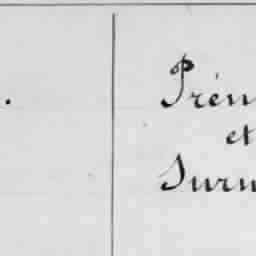 .
Prén
et
Surn